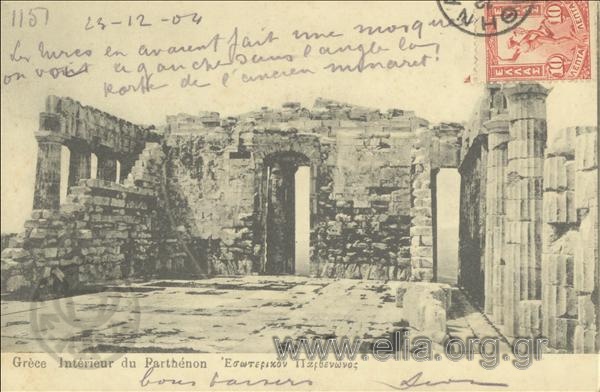 1151 23-12-04
Les Turcs en avaient fait une mosquée
on voit a gauche dans l'angle la
porte de l'ancien minaret!
ΑΘΗΝΑ
10 ΛΕΠΤΑ 10
ΕΛΛΑΣ
10 ΛΕΠΤΑ 10
www.elia.org.gr
Grèce Intérieur du Parthénon Ἐσωτερικὸν Παρθενῶνος
bons baisers